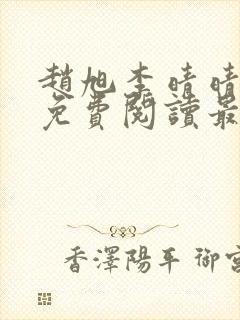 趙旭李晴晴
免費閱讀最
香澤陽平 御宮